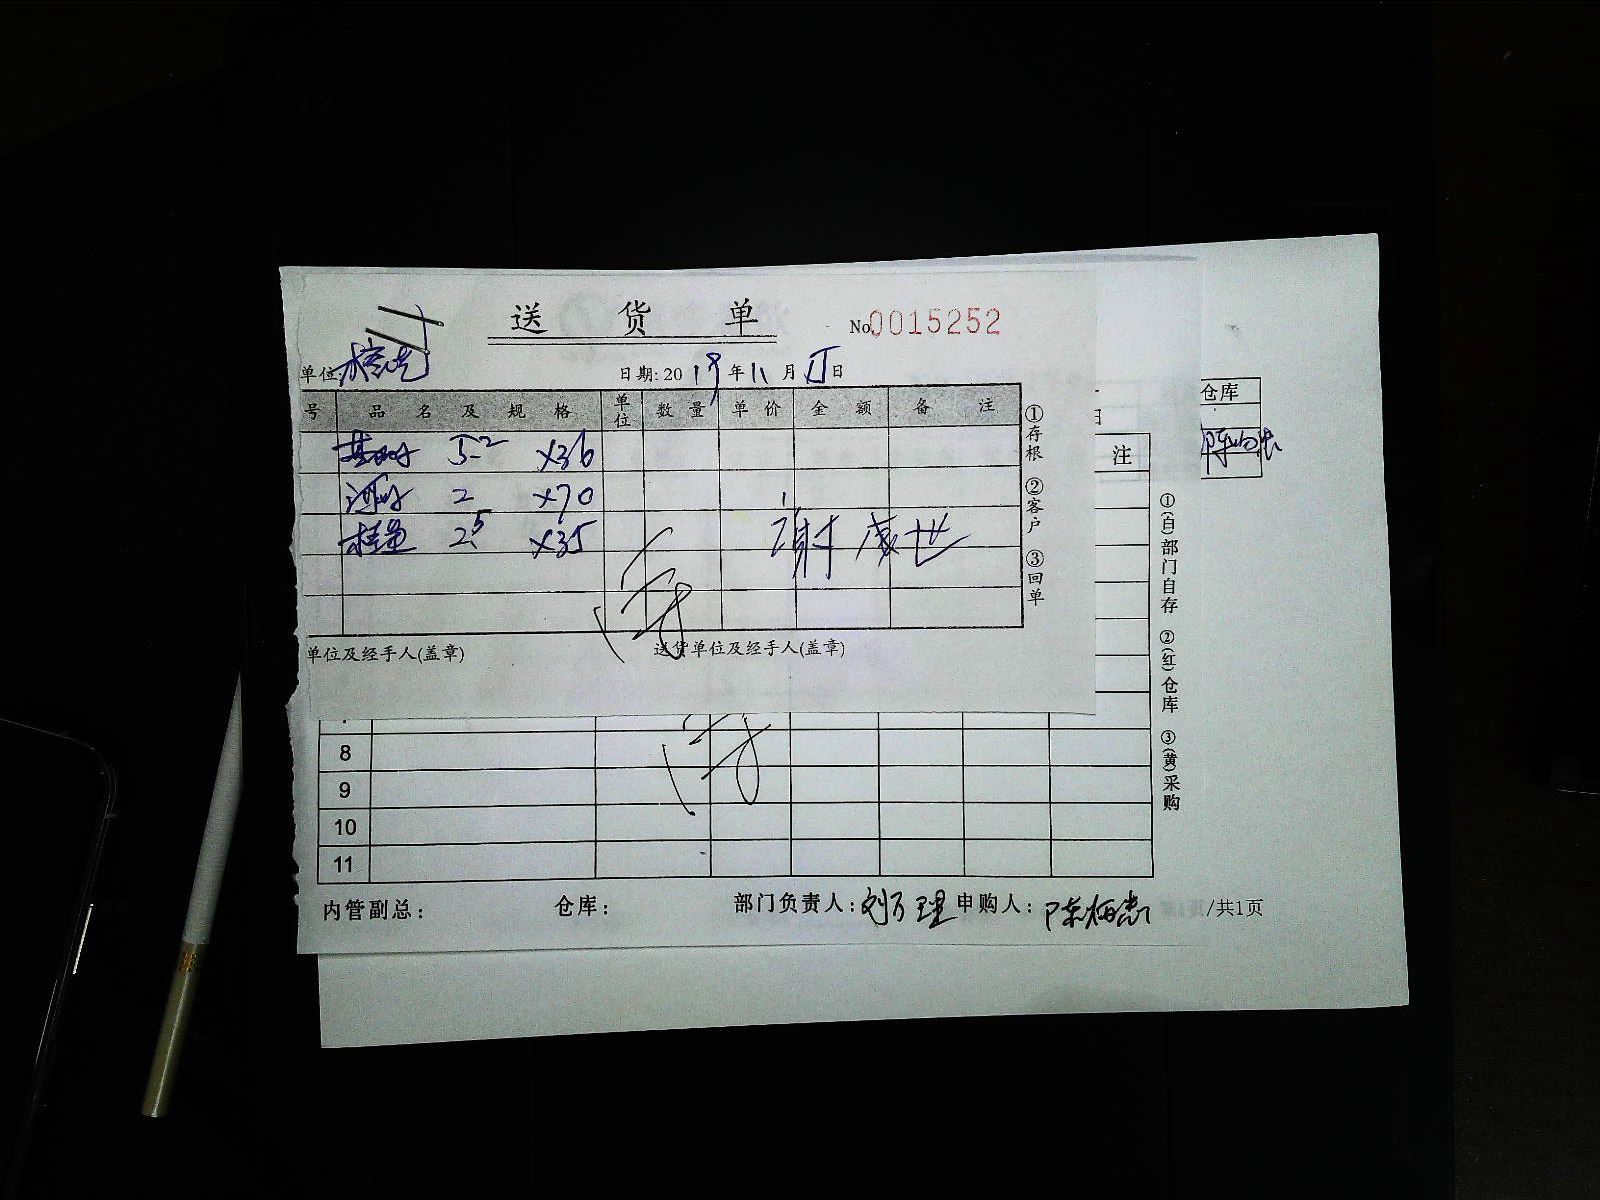 送货单
No.0015252
单位:
日期: 2019年11月 日
号 品名及规格 单位 数量 单价 金额 备注
5-2 ×36
2 ×70
25 ×35
谢成世
①存根 ②客户 ③回单
单位及经手人(盖章) 送货单位及经手人(盖章)
仓库
日
注
①(白)部门自存 ②(红)仓库 ③(黄)采购
8
9
10
11
内管副总: 仓库: 部门负责人: 刘万理 申购人: /共1页